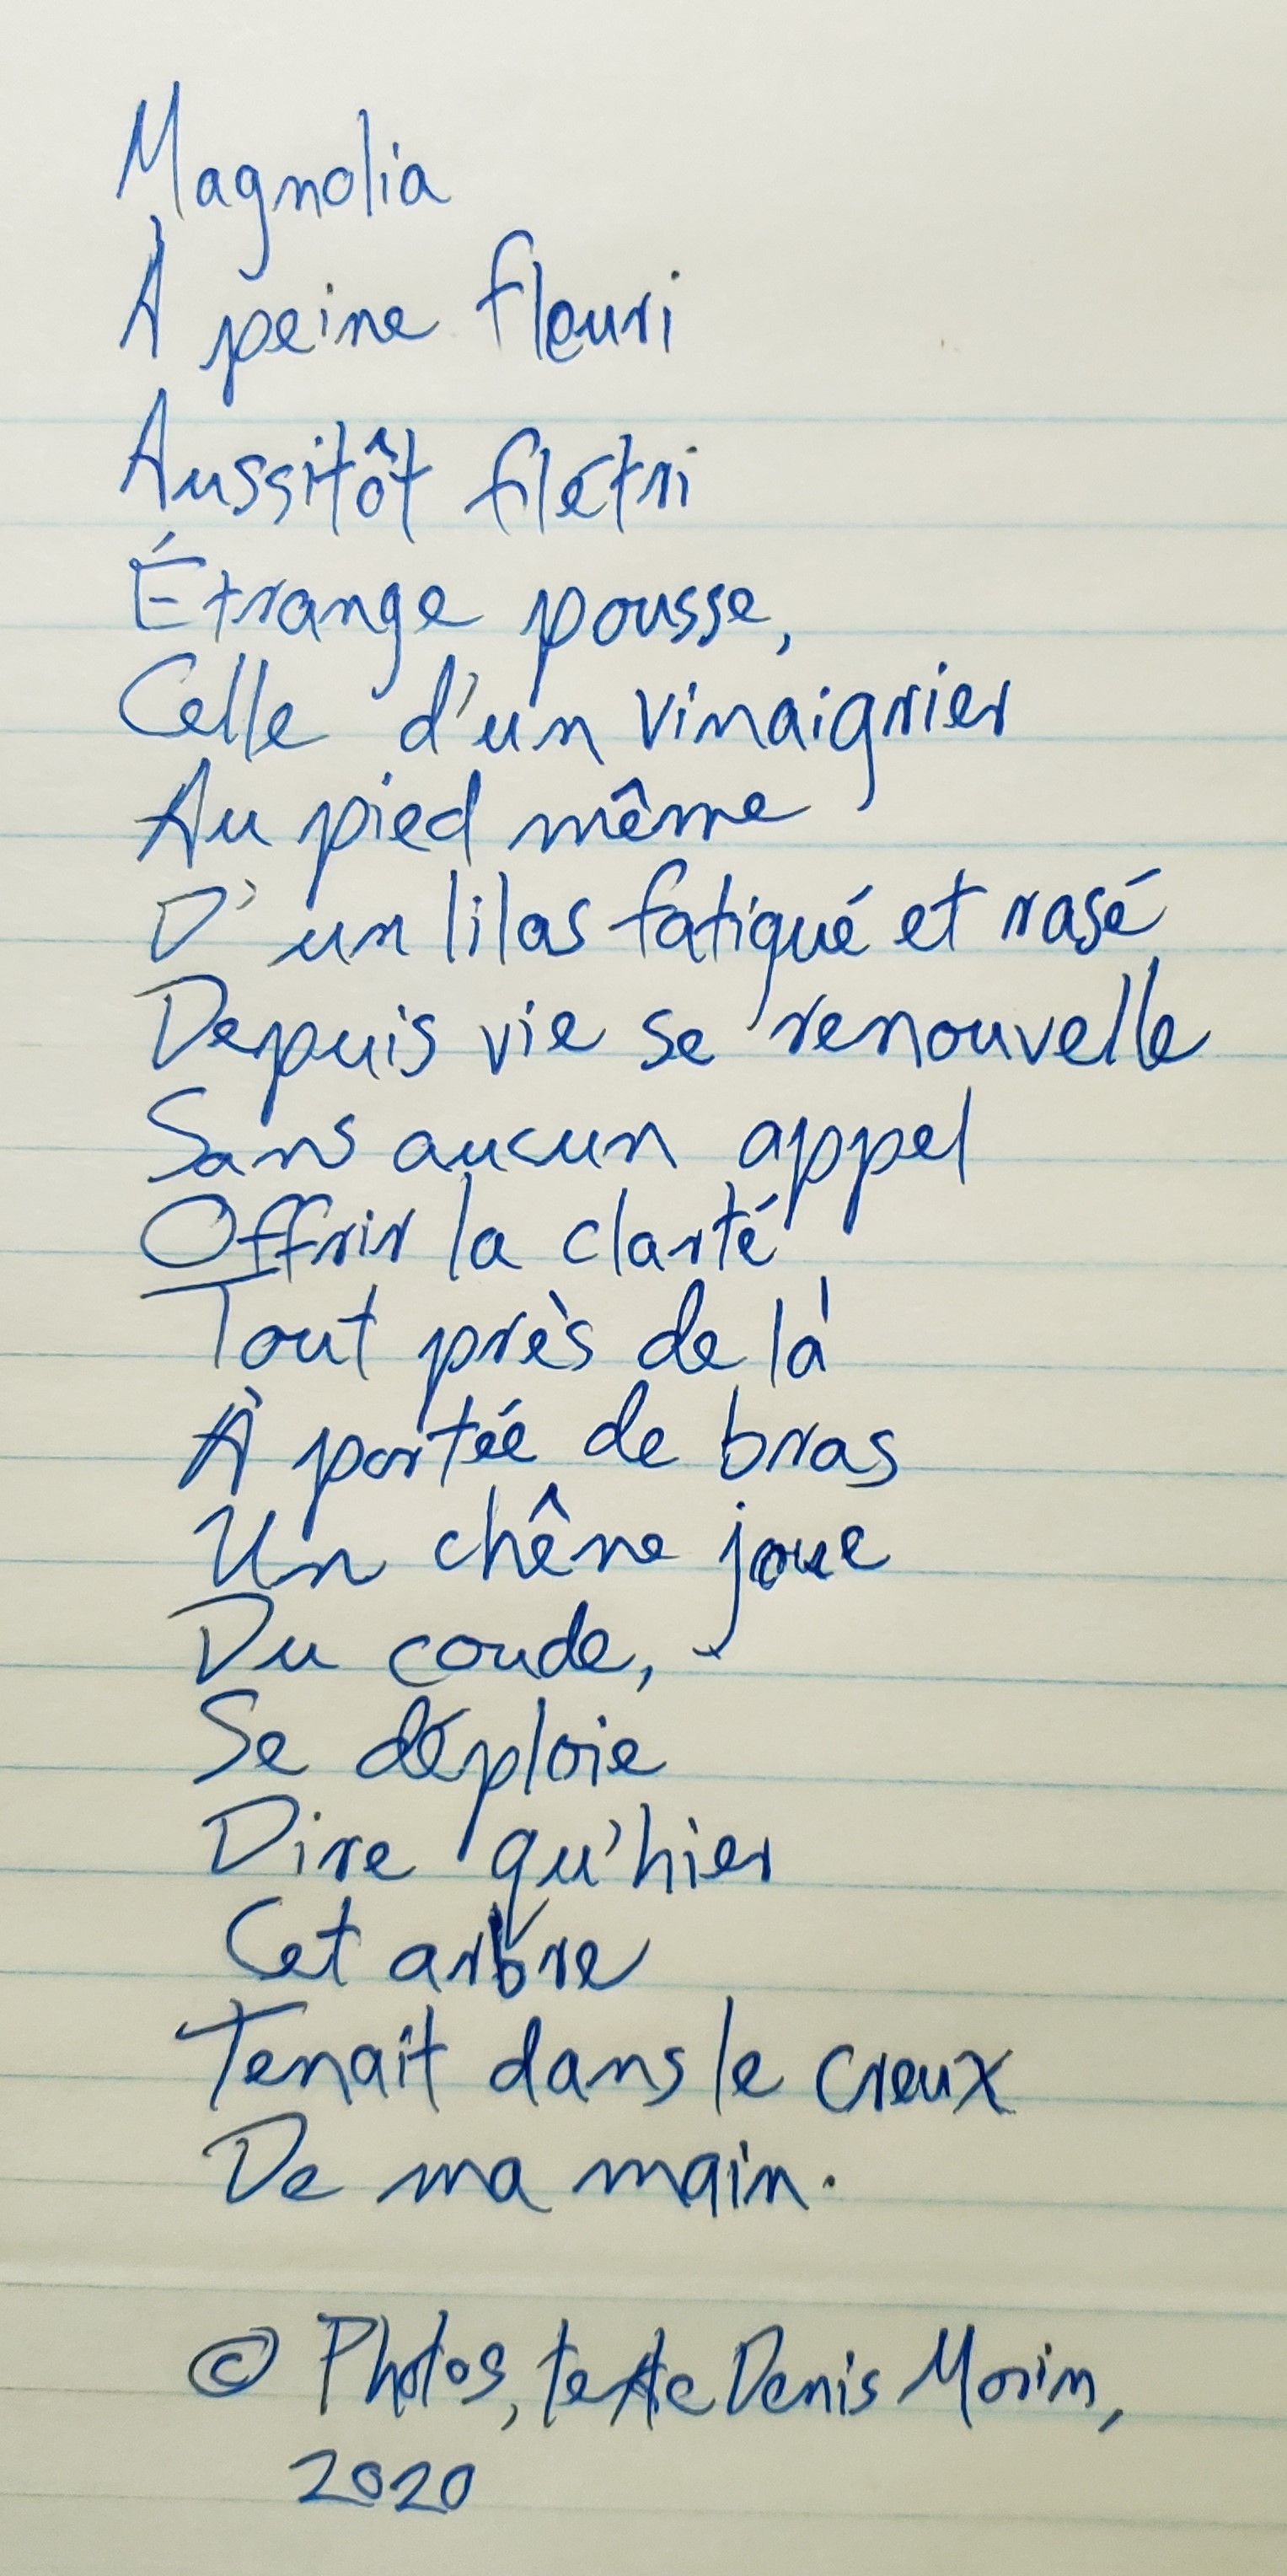 Magnolia
À peine fleuri
Aussitôt flétri
Étrange pousse,
Celle d'un vinaigrier
Au pied même
D'un lilas fatigué et rasé
Depuis vie se renouvelle
Sans aucun appel
Offrir la clarté
Tout près de là
À portée de bras
Un chêne joue
Du coude,
Se déploie
Dire qu'hier
Cet arbre
Tenait dans le creux
De ma main.
© Photos, texte Denis Morin,
2020